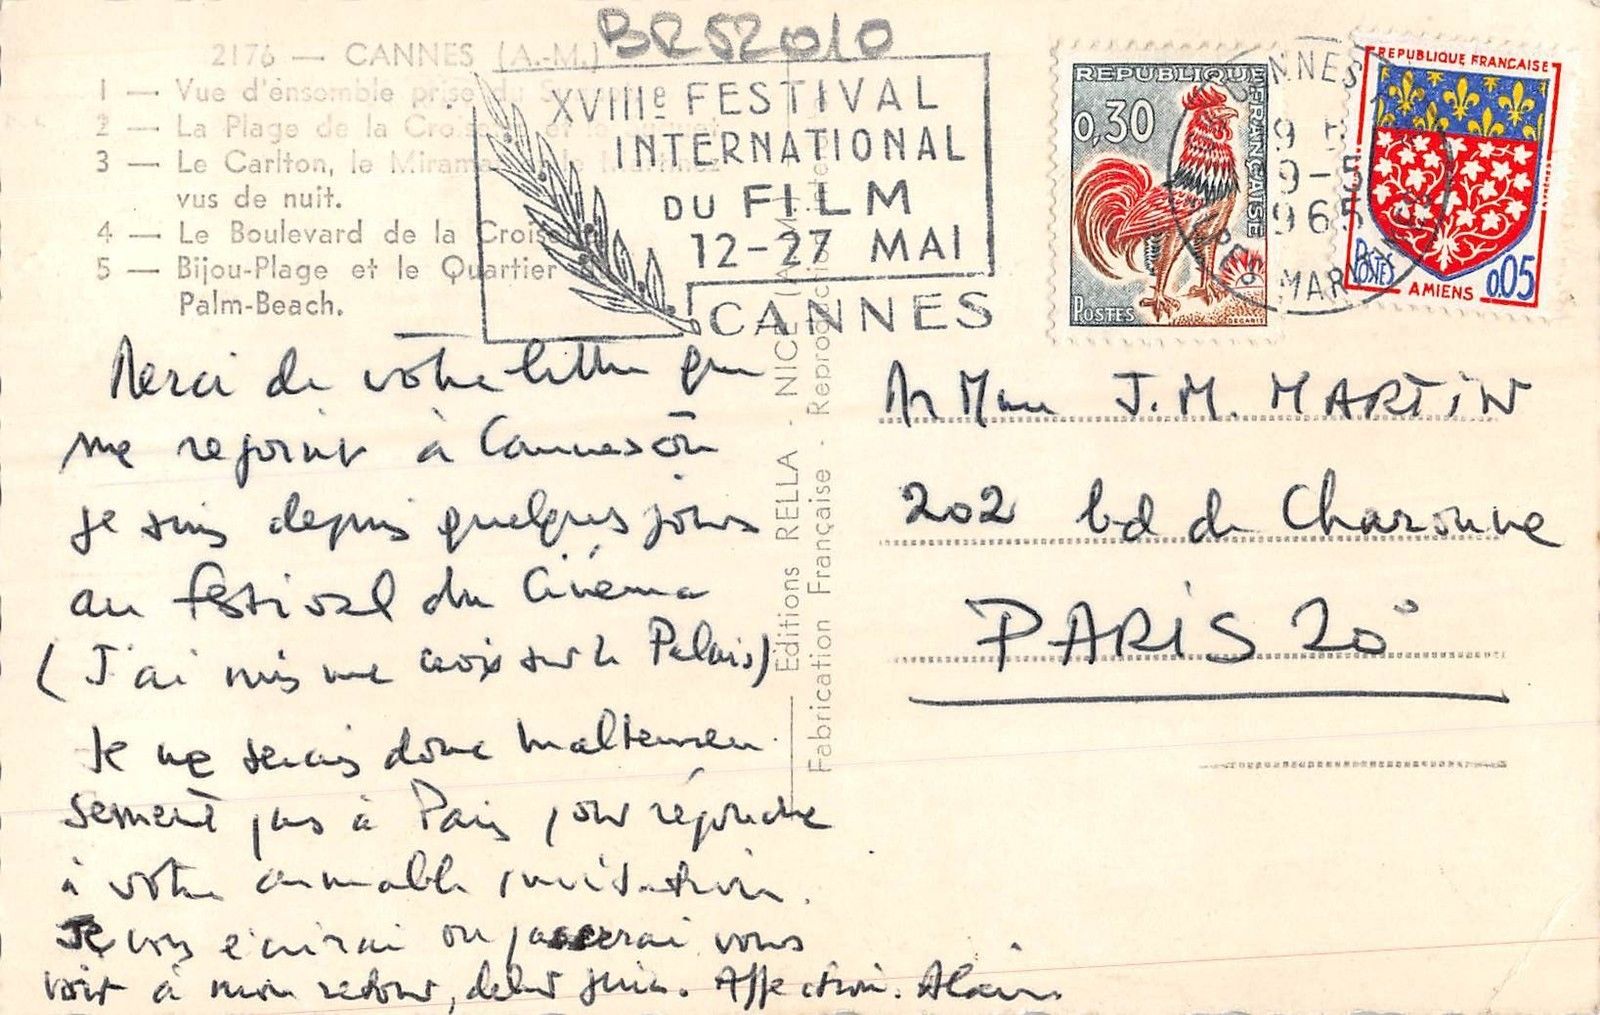 BR52010
2176 — CANNES (A.-M.)
1 — Vue d'énsemble prise du
2 — La Plage de la Croisette et le
3 — Le Carlton, le Miramar et le Martinez
vus de nuit.
4 — Le Boulevard de la Croisette.
5 — Bijou-Plage et le Quartier
Palm-Beach.
XVIIIe FESTIVAL
INTERNATIONAL
DU FILM
12-27 MAI
CANNES
REPUBLIQUE FRANÇAISE
0,30
POSTES
DECARIS
CANNES
9-5
1965
ALPES MAR
REPUBLIQUE FRANÇAISE
POSTES
AMIENS
0,05
Merci de votre lettre qui
me rejoint à Cannes où
je suis depuis quelques jours
au festival du Cinéma
(J'ai mis une croix sur le Palais)
Je ne serai donc malheureu
sement pas à Paris pour répondre
à votre aimable invitation.
Je vous écrirai ou passerai vous
voir à mon retour, début juin. Affection. Alain.
Editions RELLA - NICE (A.-M.)
Fabrication Française - Reproduction
M Mme J.M. MARTIN
202 bd de Charonne
PARIS 20°